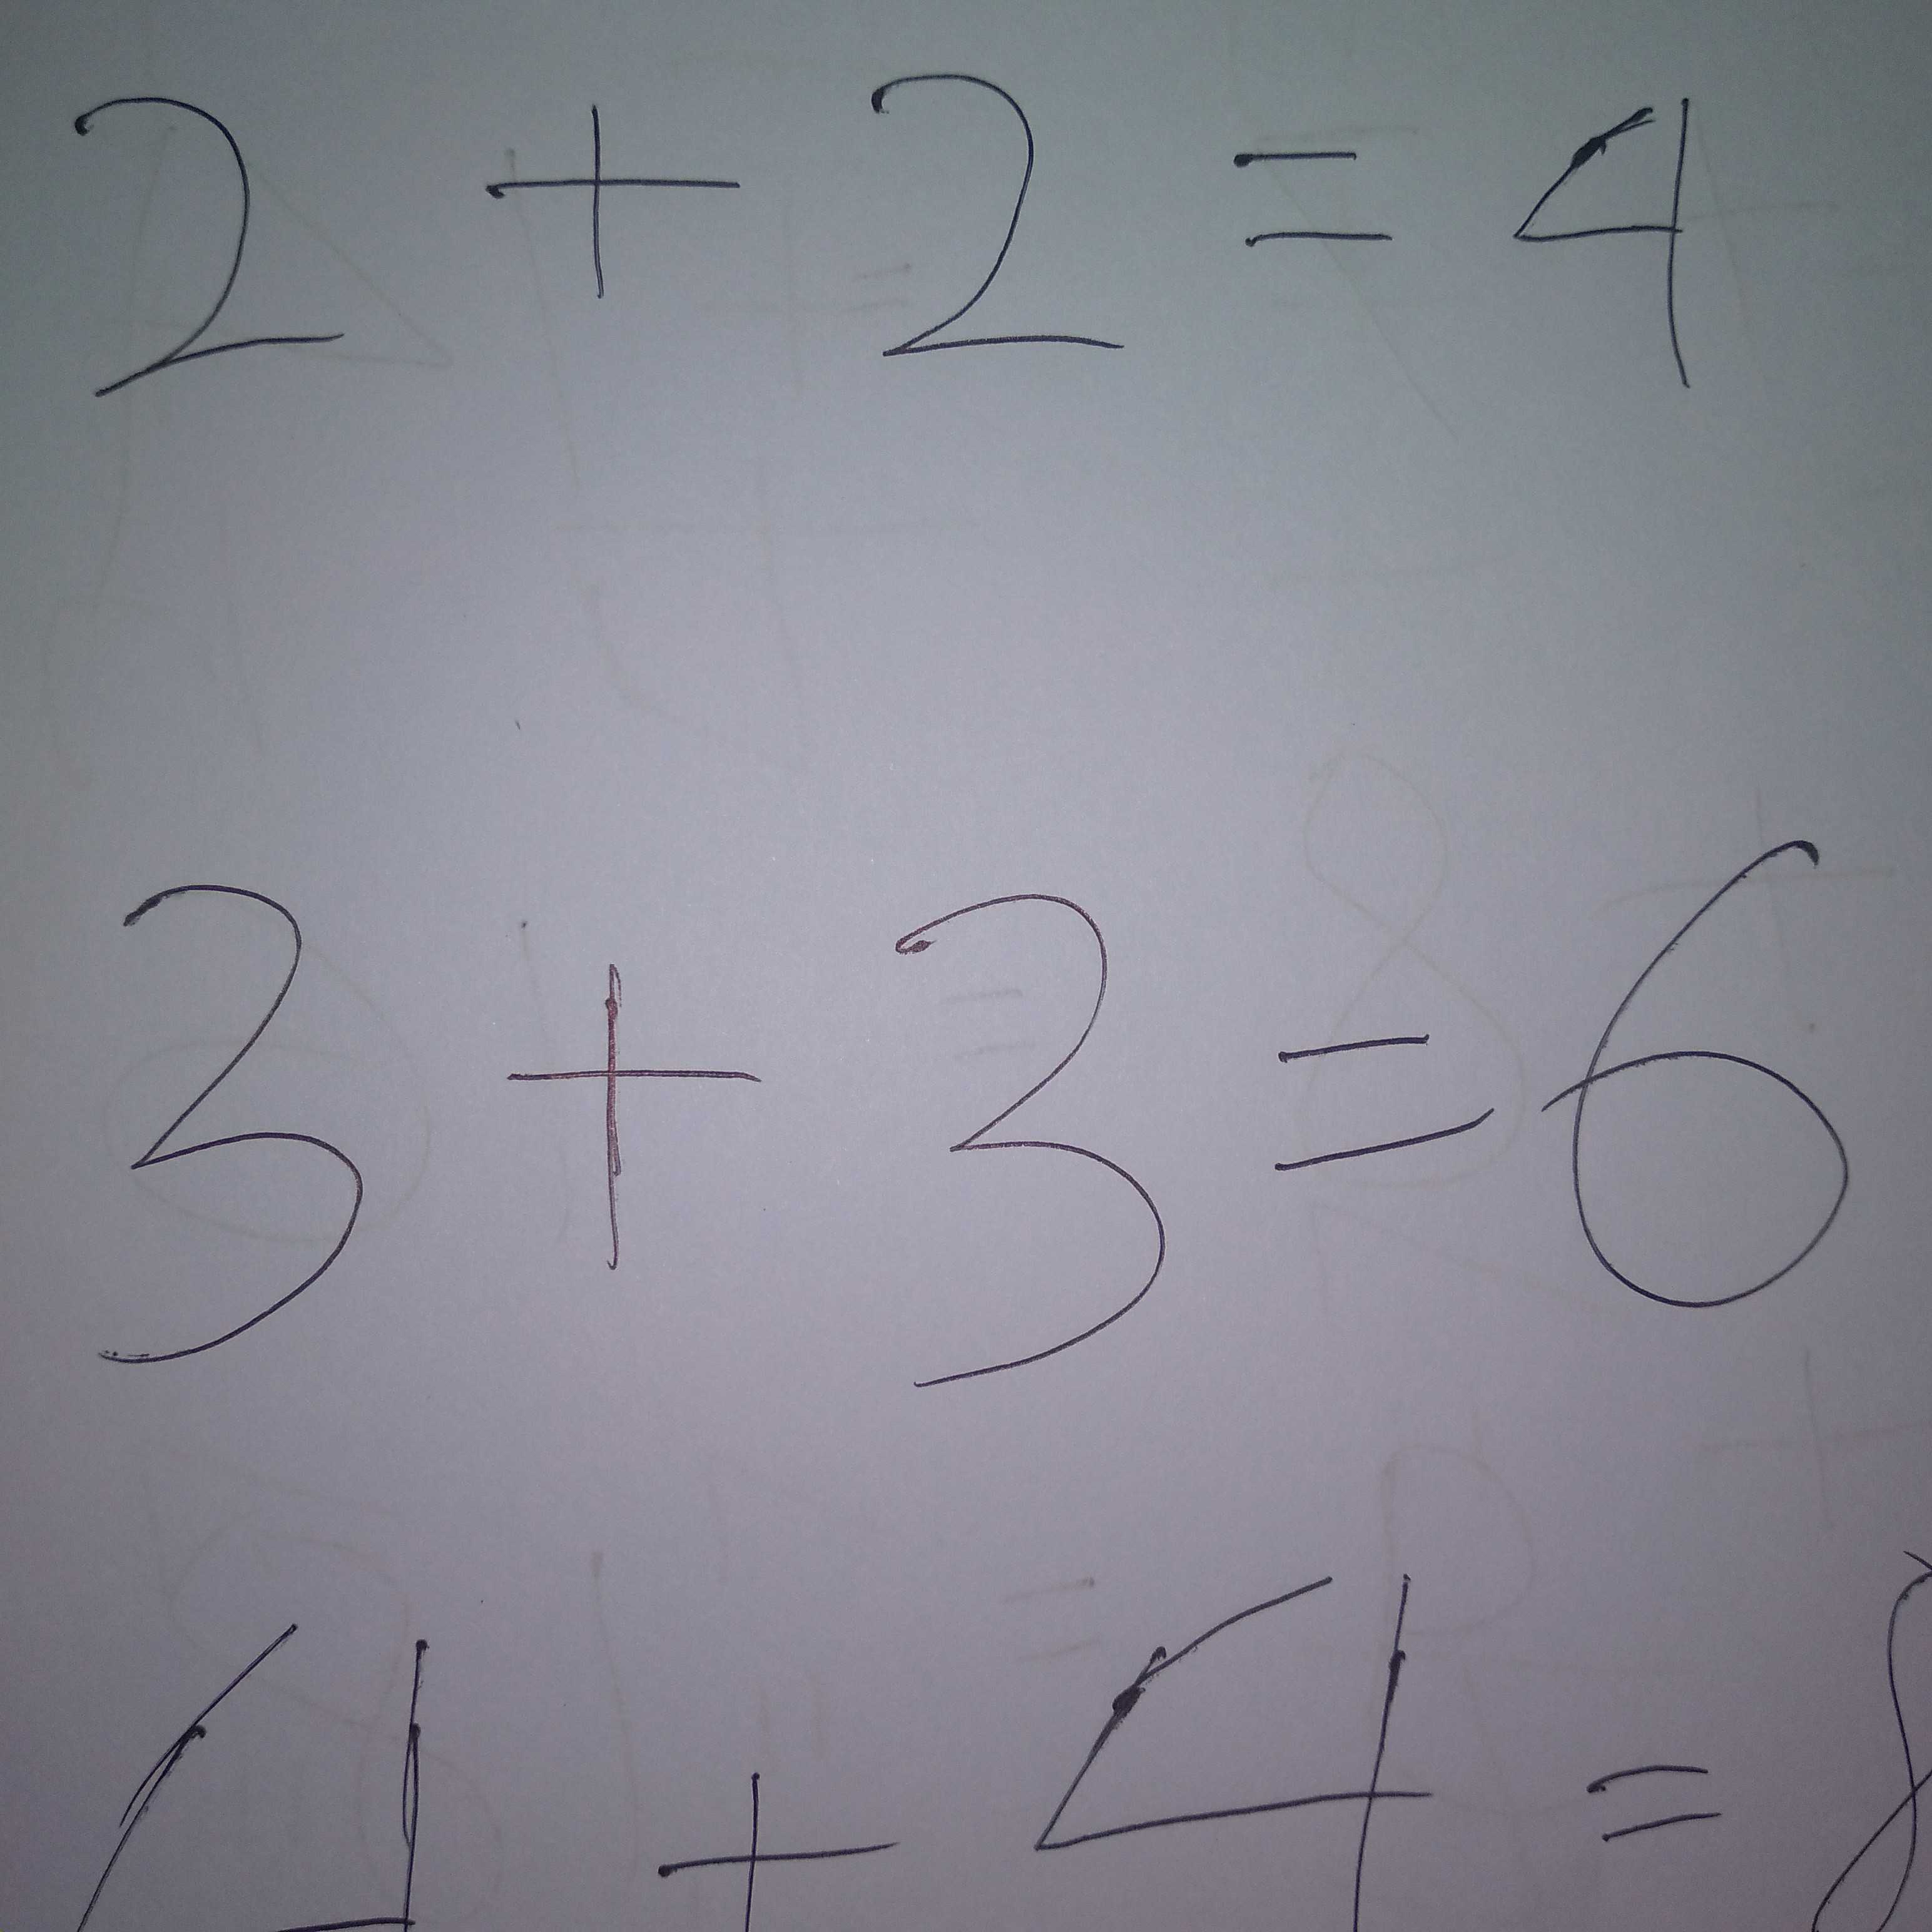 2 + 2 = 4
3 + 3 = 6
4 + 4 = 8